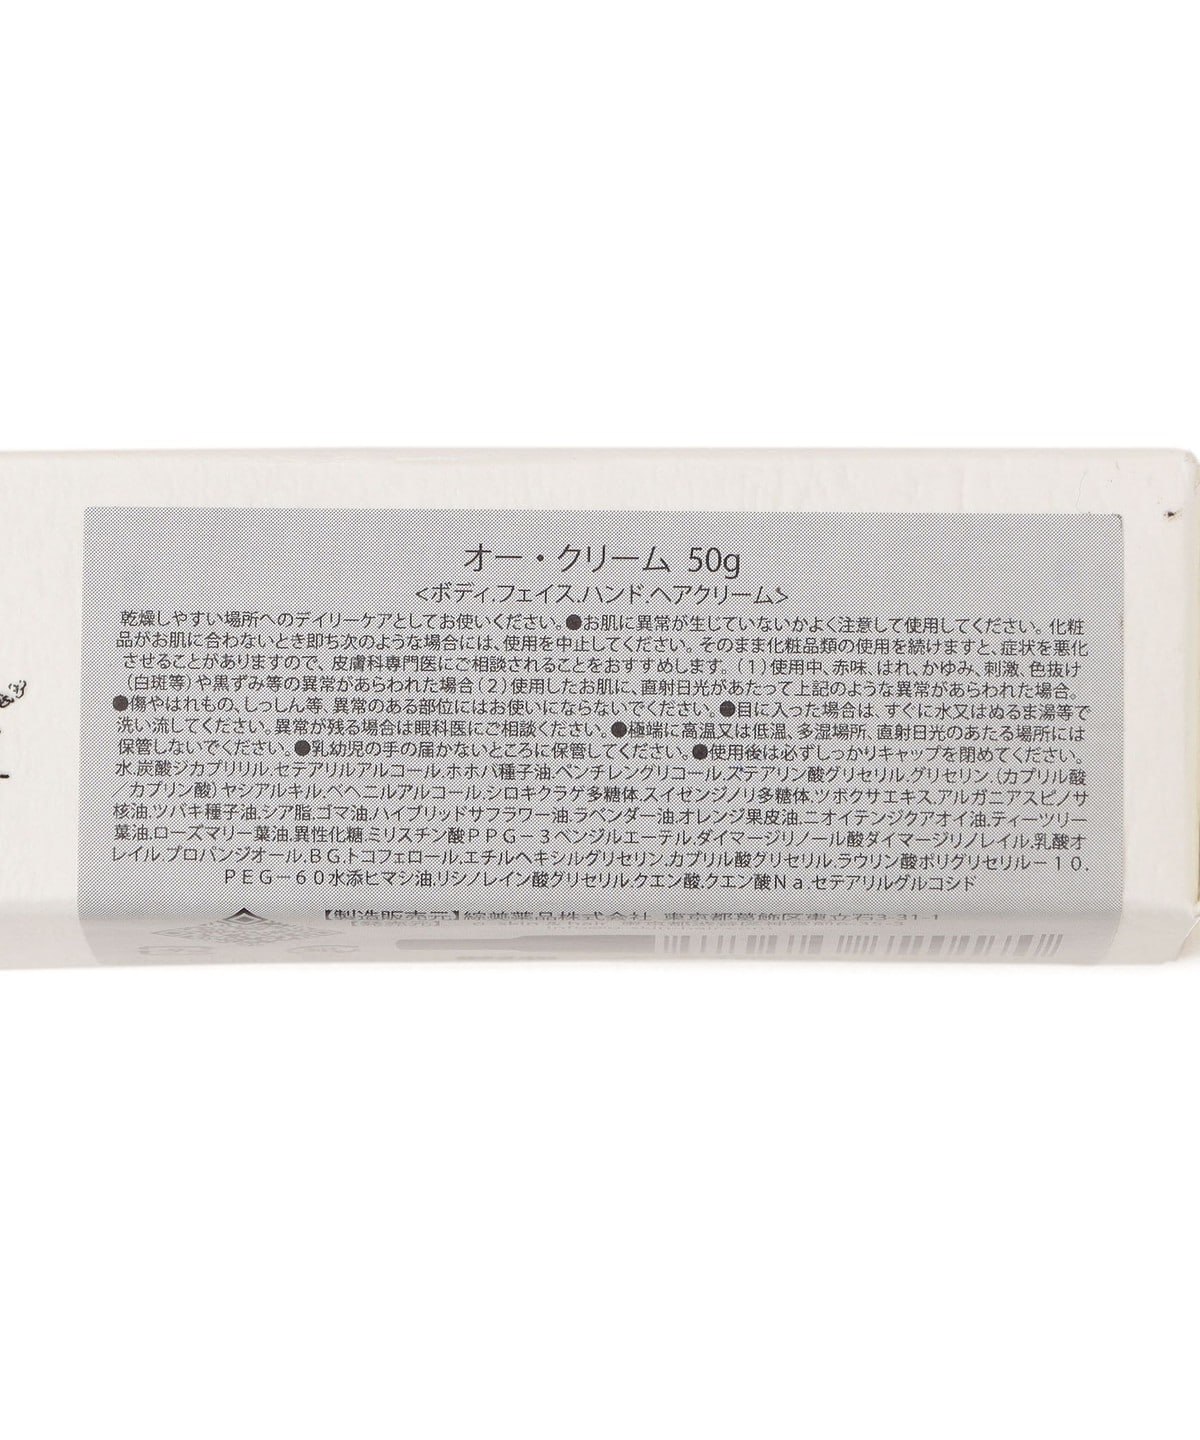 オー・クリーム 50g
<ボディ.フェイス.ハンド.ヘアクリーム>
乾燥しやすい場所へのデイリーケアとしてお使いください。●お肌に異常が生じていないかよく注意して使用してください。化粧
品がお肌に合わないとき即ち次のような場合には、使用を中止してください。そのまま化粧品類の使用を続けますと、症状を悪化
させることがありますので、皮膚科専門医にご相談されることをおすすめします。(1)使用中、赤味、はれ、かゆみ、刺激、色抜け
(白斑等)や黒ずみ等の異常があらわれた場合(2)使用したお肌に、直射日光があたって上記のような異常があらわれた場合。
●傷やはれもの、しっしん等、異常のある部位にはお使いにならないでください。●目に入った場合は、すぐに水又はぬるま湯等で
洗い流してください。異常が残る場合は眼科医にご相談ください。●極端に高温又は低温、多湿場所、直射日光のあたる場所には
保管しないでください。●乳幼児の手の届かないところに保管してください。●使用後は必ずしっかりキャップを閉めてください。
水.炭酸ジカプリリル.セテアリルアルコール.ホホバ種子油.ペンチレングリコール.ステアリン酸グリセリル.グリセリン.(カプリル酸
/カプリン酸)ヤシアルキル.ベヘニルアルコール.シロキクラゲ多糖体.スイゼンジノリ多糖体.ツボクサエキス.アルガニアスピノサ
核油.ツバキ種子油.シア脂.ゴマ油.ハイブリッドサフラワー油.ラベンダー油.オレンジ果皮油.ニオイテンジクアオイ油.ティーツリー
葉油.ローズマリー葉油.異性化糖.ミリスチン酸PPG-3ベンジルエーテル.ダイマージリノール酸ダイマージリノレイル.乳酸オ
レイル.プロパンジオール.BG.トコフェロール.エチルヘキシルグリセリン.カプリル酸グリセリル.ラウリン酸ポリグリセリル-10.
PEG-60水添ヒマシ油.リシノレイン酸グリセリル.クエン酸.クエン酸Na.セテアリルグルコシド
【製造販売元】綜普薬品株式会社 東京都葛飾区東立石3-31-1